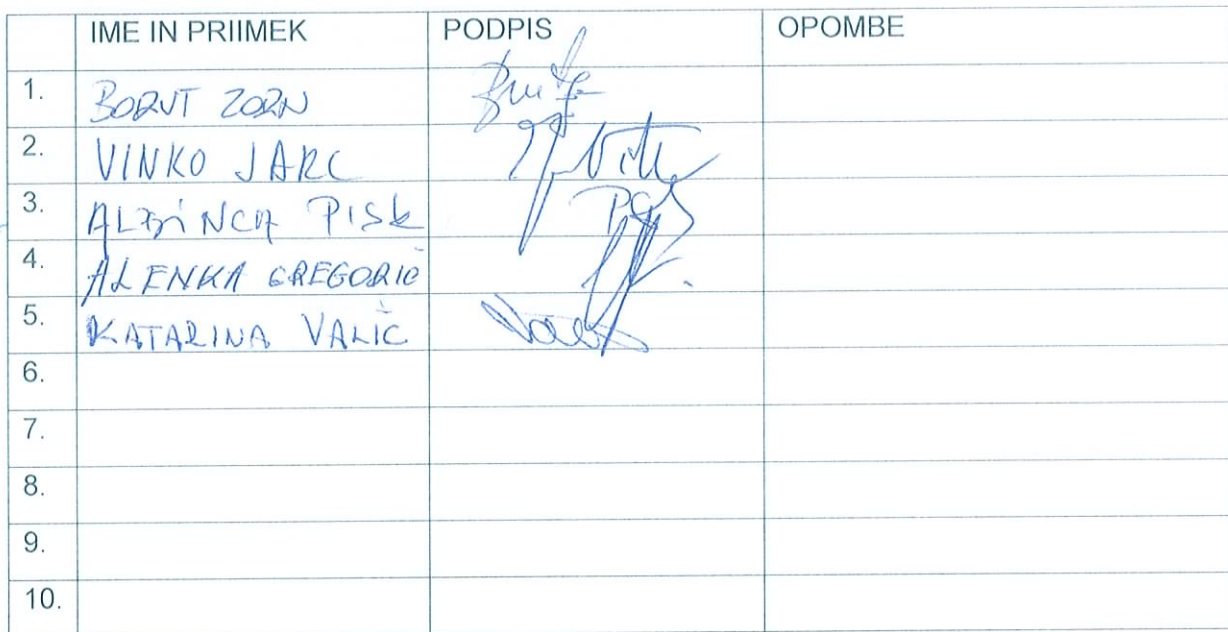 IME IN PRIIMEK PODPIS OPOMBE
1. BORUT ZORN
2. VINKO JARC
3. ALBINCA PISK
4. ALENKA GREGORIČ
5. KATARINA VALIČ
6.
7.
8.
9.
10.